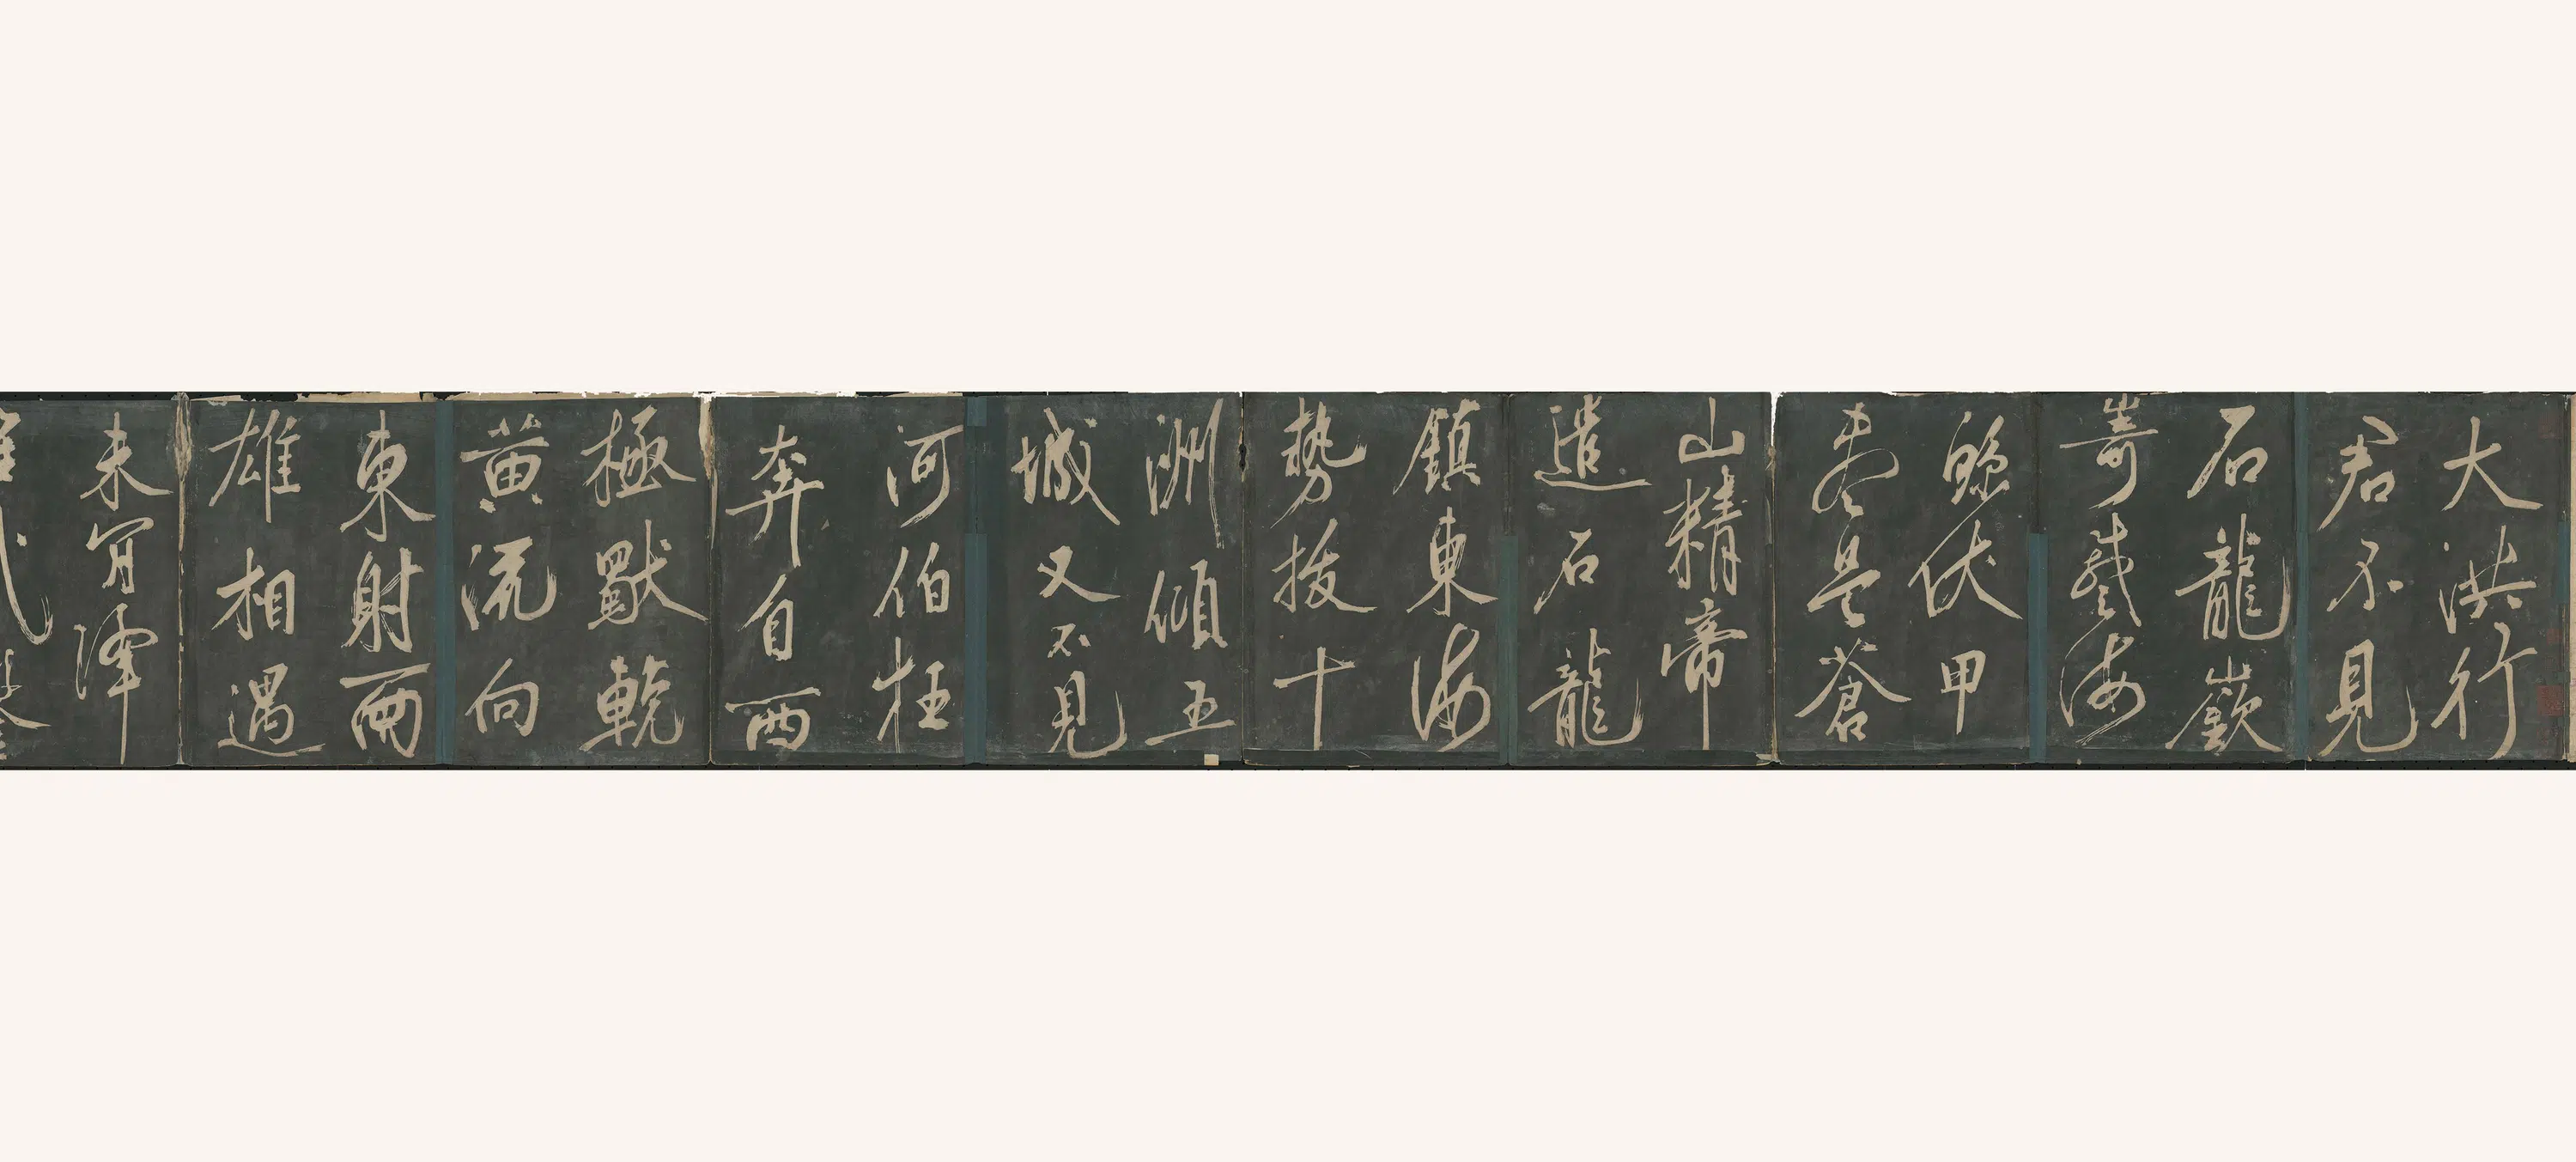 大洪行
君不見
石龍嶔
嵜戲海
伏甲
盡是蒼
山精帝
遣石龍
鎮東海
勢拔十
洲傾五
城又不見
河伯狂
奔自西
極
黃流向
東射兩
雄相遇
未肯降